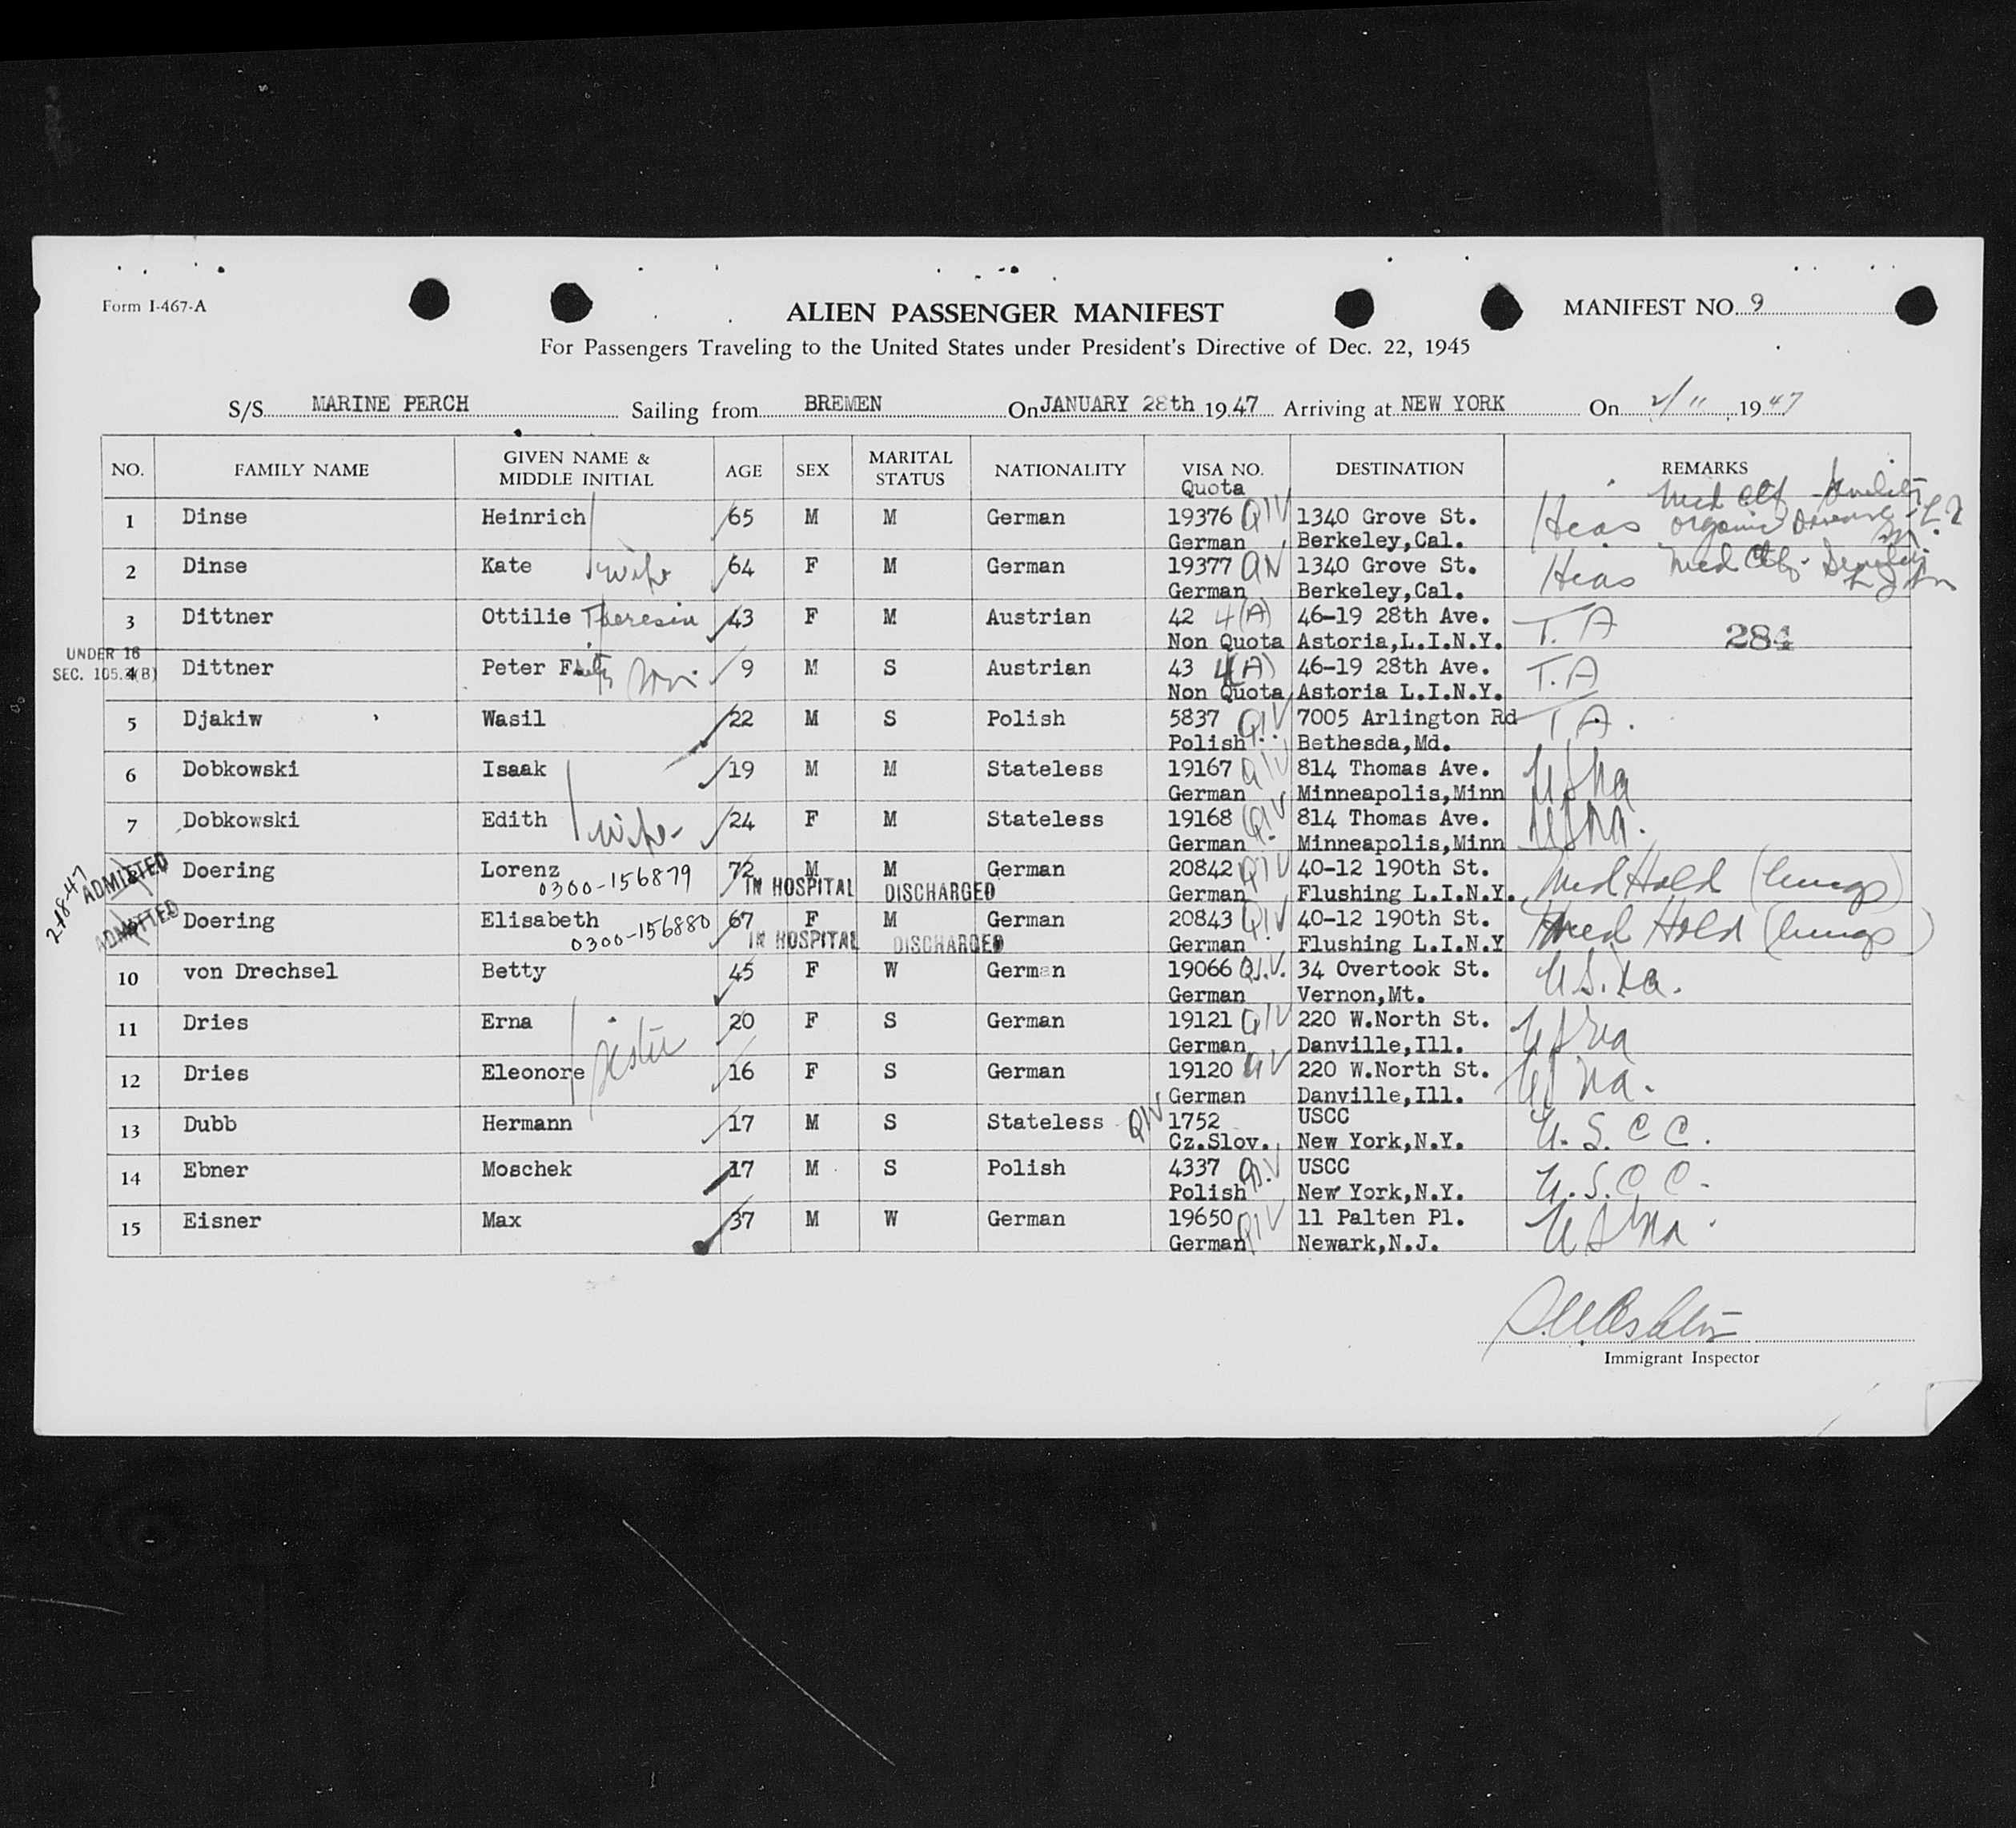 Form I-467-A
ALIEN PASSENGER MANIFEST
MANIFEST NO. 9
For Passengers Traveling to the United States under President's Directive of Dec. 22, 1945
S/S MARINE PERCH Sailing from BREMEN On JANUARY 28th 1947 Arriving at NEW YORK On 2/11, 1947
NO. FAMILY NAME GIVEN NAME & MIDDLE INITIAL AGE SEX MARITAL STATUS NATIONALITY VISA NO. Quota DESTINATION REMARKS
1 Dinse Heinrich 65 M M German 19376 QIV 1340 Grove St. Hias Med Ctf Senility
German Berkeley,Cal. organic
2 Dinse Kate wife 64 F M German 19377 QIV 1340 Grove St. Hias Med Ctf Senility
German Berkeley,Cal.
3 Dittner Ottilie Theresia 43 F M Austrian 42 4(A) 46-19 28th Ave. T. A
Non Quota Astoria,L.I.N.Y. 284
UNDER 16
SEC. 105.3(B)
4 Dittner Peter son 9 M S Austrian 43 4(A) 46-19 28th Ave. T.A
Non Quota Astoria L.I.N.Y.
5 Djakiw Wasil 22 M S Polish 5837 QIV 7005 Arlington Rd T A.
Polish Bethesda,Md.
6 Dobkowski Isaak 19 M M Stateless 19167 QIV 814 Thomas Ave. USNA
German Minneapolis,Minn
7 Dobkowski Edith wife 24 F M Stateless 19168 QIV 814 Thomas Ave. USNA.
German Minneapolis,Minn
2-18-47 ADMITTED
8 Doering Lorenz 72 M M German 20842 QIV 40-12 190th St. Med Hold (lungs)
0300-156879 IN HOSPITAL DISCHARGED German Flushing L.I.N.Y.
ADMITTED
9 Doering Elisabeth 67 F M German 20843 QIV 40-12 190th St. Med Hold (lungs)
0300-156880 IN HOSPITAL DISCHARGED German Flushing L.I.N.Y
10 von Drechsel Betty 45 F W German 19066 Q.I.V. 34 Overtook St. U.S.Na.
German Vernon,Mt.
11 Dries Erna 20 F S German 19121 QIV 220 W.North St. USNa
German Danville,Ill.
12 Dries Eleonore sister 16 F S German 19120 QIV 220 W.North St. USNa.
German Danville,Ill.
13 Dubb Hermann 17 M S Stateless QIV 1752 USCC U. S. C C.
Cz.Slov. New York,N.Y.
14 Ebner Moschek 17 M S Polish 4337 QIV USCC U.S.C C.
Polish New York,N.Y.
15 Eisner Max 37 M W German 19650 QIV 11 Palten Pl. USNA.
German Newark,N.J.
Immigrant Inspector